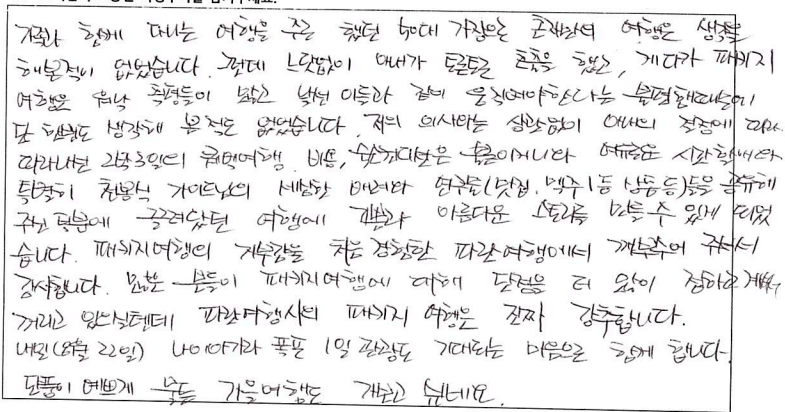 가족과 함께 다니는 여행을 주로 했던 50대 가장으로 단체관광 여행은 생각을
해본적이 없었습니다. 헌데 느닷없이 아내가 토론토로 을 했고, 게다가 패키지
여행은 워낙 혹평들이 많고 낯선 이들과 같이 움직여야한다는 불편함때문에
단 한번도 생각해 본 적도 없었습니다. 저의 의사와는 상관없이 아내의 결정에 따라
따라나선 2박3일의 퀘벡여행. 비용, 숙소 은 물론이거니와 여유로운 시간할애와
특별히 천봉식 가이드님의 세심한 배려와 (맛집, 맥주1등 상품 등)들을 공유해
주신 덕분에 끌려갔던 여행에 기쁨과 아름다운 스토리를 만들 수 있게 되었
습니다. 패키지여행의 거부감을 처음 경험한 파란여행에서 깨부숴 주셔서
감사합니다. 많은 분들이 패키지여행에 대해 단점을 더 많이 접하고 계셔서
꺼리고 있으실텐데 파란여행사의 패키지 여행은 진짜 강추합니다.
내일(8월 22일) 나이아가라 폭포 1일 관광도 기대되는 마음으로 함께 합니다.
단풍이 예쁘게 물든 가을여행도 가보고 싶네요.